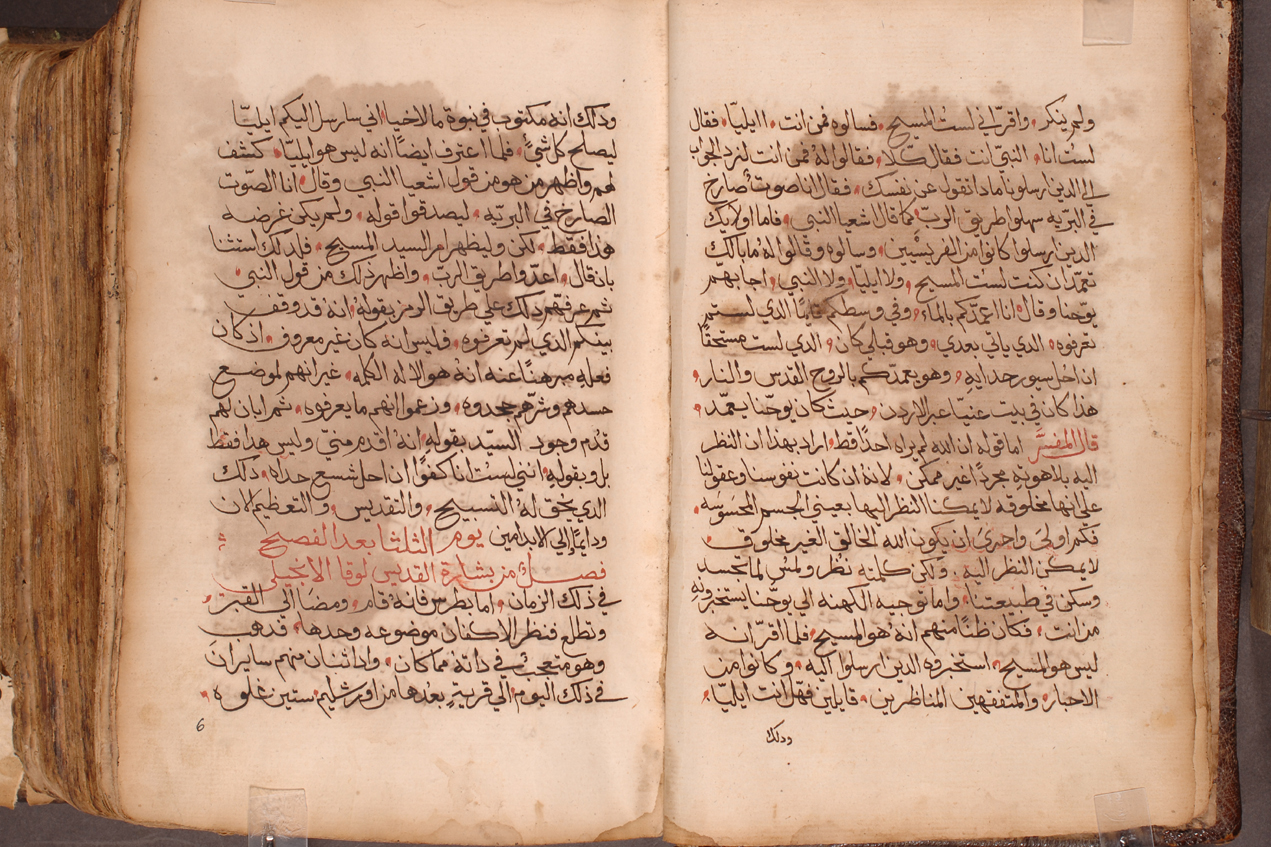 ولم ينكر، واقر اني لست المسيح، فسالوه فمن انت، اايليا، فقال
لست انا، النبي انت فقال كلا، فقالوا له فمن انت لنرد الجواب
الي الدين ارسلونا مادا تقوله عن نفسك، فقال انا صوت صارخ
في البريه سهلوا طريق الرب، كما قال اشعيا النبي، فاما اولايك
الدين ارسلوا كانوا من الفريسيين، وسالوه وقالوا له ما بالك
تعمد ان كنت لست المسيح، ولا ايليا، ولا النبي، اجابهم
يوحنا وقال، انا اعمدكم بالماء، وفي وسطكم قايما الدي لستم
تعرفوه، الدي ياتي بعدي، وهو قبلي كان، الدي لست مستحقا
ان احل سيور حدايه، وهو يعمدكم بالروح القدس والنار،
هدا كان في بيت عنيا عبر الاردن، حيت كان يوحنا يعمد،
قال المفسر اما قوله ان الله لم يراه احدا قط، اراد بهدا ان النظر
اليه بلاهوته مجردا غير ممكن، لانه ان كانت نفوسنا وعقولنا
علي انها مخلوقه لا يمكننا النظر اليها بعيني الجسم المحسوسه،
فكم اولي واحري ان يكون الله الخالق الغير مخلوق،
لا يمكن النظر اليه، ولكن كلمته نظر ولمس لما تجسد
وسكن في طبيعتنا، واما توجيه الكهنة الي يوحنا يستخبرونه
من انت، فكان ظنا منهم انه هو المسيح، فلما اقر انه
ليس هو المسيح، استخبروه الدين ارسلوا اليه، وكانوا من
الاحبار، والمتفقهين المناظرين، قايلين فهل انت ايليا،
ودلك
ودلك انه مكتوب في نبوة مالاخيا، اني سارسل اليكم ايليا
ليصلح كل شي، فلما اعترف ايضا انه ليس هو ايليا، كشف
لهم واظهر من هو من قول اشعيا النبي وقال، انا الصوت
الصارخ في البريه، ليصدقوا قوله، ولم يكن غرضه
هدا فقط، لكن وليظهر امر السيد المسيح، فلدلك استثنا
بان قال، اعدوا طريق الرب، واظهر دلك من قول النبي،
ثم عرفهم دلك علي طريق الرمز بقوله، انه قد وقف
بينكم الدي لم تعرفوه، فليس انه كان غير معروف، اد كان
فعله مبرهنا عنه انه هو الاله الكلمه، غير انهم لموضع
حسدهم وشرهم جحدوه، وزعموا انهم ما يعرفوه، ثم ابان لهم
قدم وجود السيد بقوله، انه اقدم مني، وليس هدا فقط
بل وبقوله، انني لست انا كفوا ان احل شسع حداه، دلك
الدي يحق له التسبيح، والتقديس، والتعظيم الان
ودايما والي الابد امين يوم الثلثا بعد الفصيح
فصل من بشارة القديس لوقا الانجيلي
في دلك الزمان، اما بطرس فانه قام، ومضا الي القبر،
وتطلع فنظر الاكفان موضوعه وحدها، فدهب
وهو متعجب في داته مما كان، وادا اثنان منهم سايران
في دلك اليوم، الي قرية بعدها من اورشليم ستين غلوه،
6